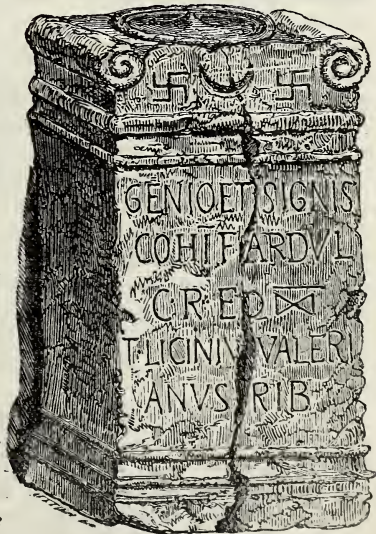 GENIO ET SIGNIS
COH Ī F VARDVL
C·R·EQ ꝏ
T LICINIV VALERI
ANVS RIB